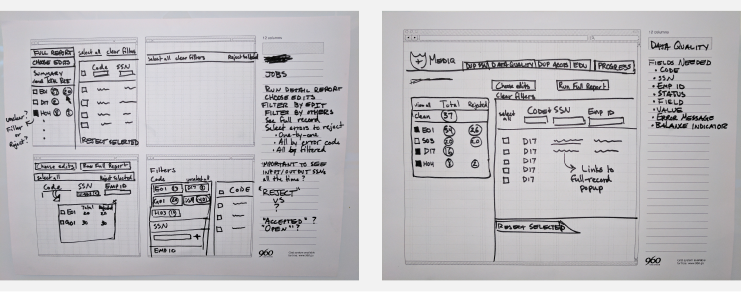 12 columns
FULL REPORT
CHOOSE EDITS
Summary
select all clear filters
Code SSN
E01
D17
H04
unclear?
Filter
or
Reject?
REJECT SELECTED
select all clear filters
JOBS
RUN DETAIL REPORT
CHOOSE EDITS
FILTER BY EDIT
FILTER BY OTHERS
See Full record
Select errors to reject
• One-by-one
• All by error code
• All by filtered
IMPORTANT TO SEE
INPUT/OUTPUT
all the time?
"REJECT"
VS
?
"ACCEPTED"?
"OPEN"?
Choose edits Run Full Report
Select all Reject Selected
Code SSN EMP ID
Total
E01
G01
Filters
Code unselect all
E01 D17
H03
SSN
EMP ID
CODE
960
12 columns
MEDIQ
DUP SSN DATA QUALITY DUP ACCS EDU PROGRESS
Choose edits Run Full Report
Clear filters
view all Total Rejected
clean 37
E01 39 26
S03 20 20
D17 16
H04 8 2
select all Code SSN Emp ID
D17
D17
D17
D17
D17
Links to
full-record
popup
REJECT SELECTED
DATA QUALITY
FIELDS NEEDED
• CODE
• SSN
• EMP ID
• STATUS
• FIELD
• VALUE
• ERROR MESSAGE
• BALANCE INDICATOR
960